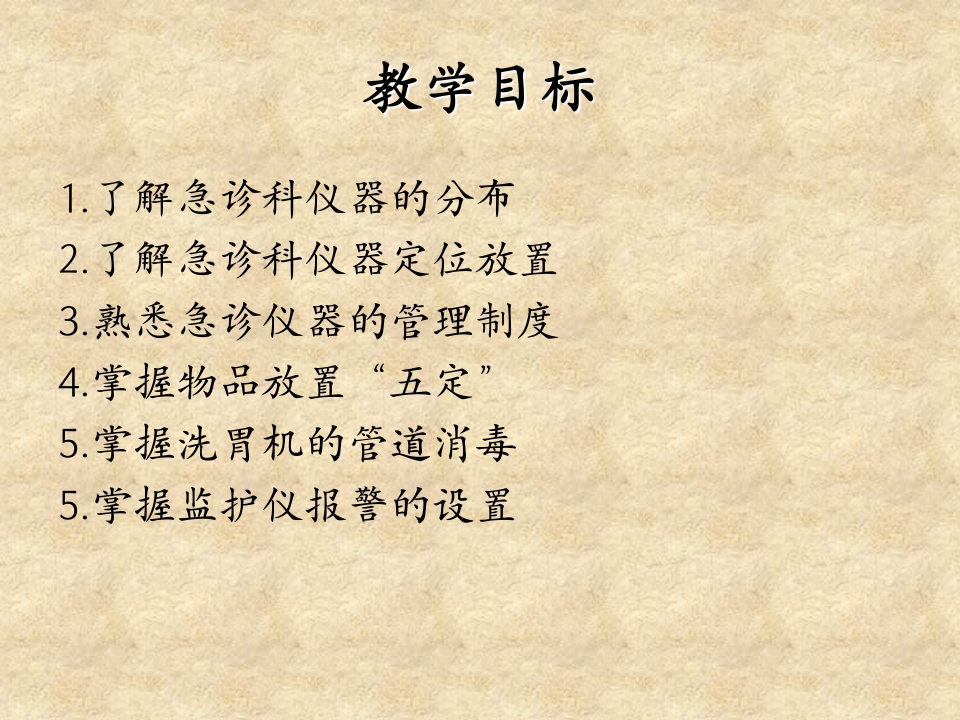 教学目标
1.了解急诊科仪器的分布
2.了解急诊科仪器定位放置
3.熟悉急诊仪器的管理制度
4.掌握物品放置“五定”
5.掌握洗胃机的管道消毒
5.掌握监护仪报警的设置